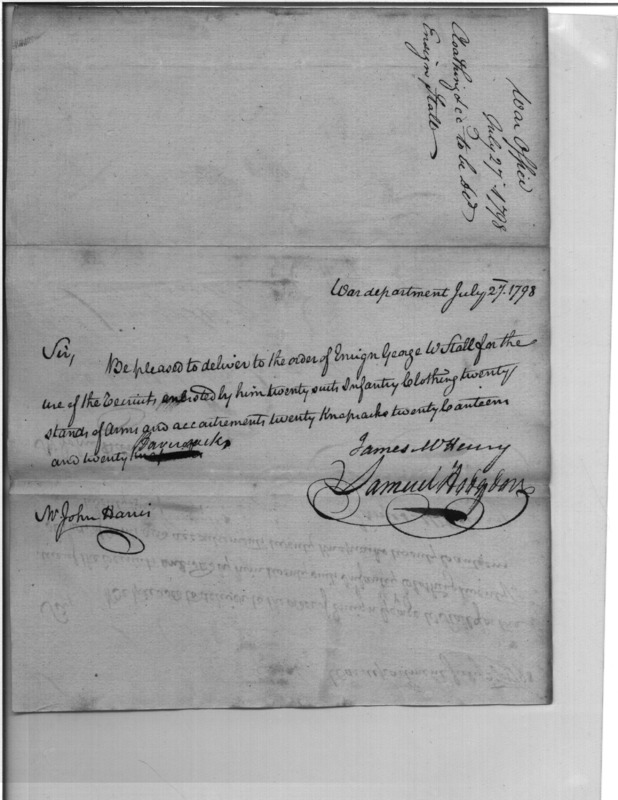 War Office
July 27th 1798
Cloathing &c to be dd
Ensign Stall
War department July 27. 1798
Sir,
Be pleased to deliver to the order of Ensign George W Stall for the
use of the Recruits enlisted by him twenty suits Infantry Clothing twenty
stands of Arms and accoutrements twenty Knapsacks twenty Canteens
and twenty Haversacks
James McHenry
Samuel Hodgdon
Mr John Harris